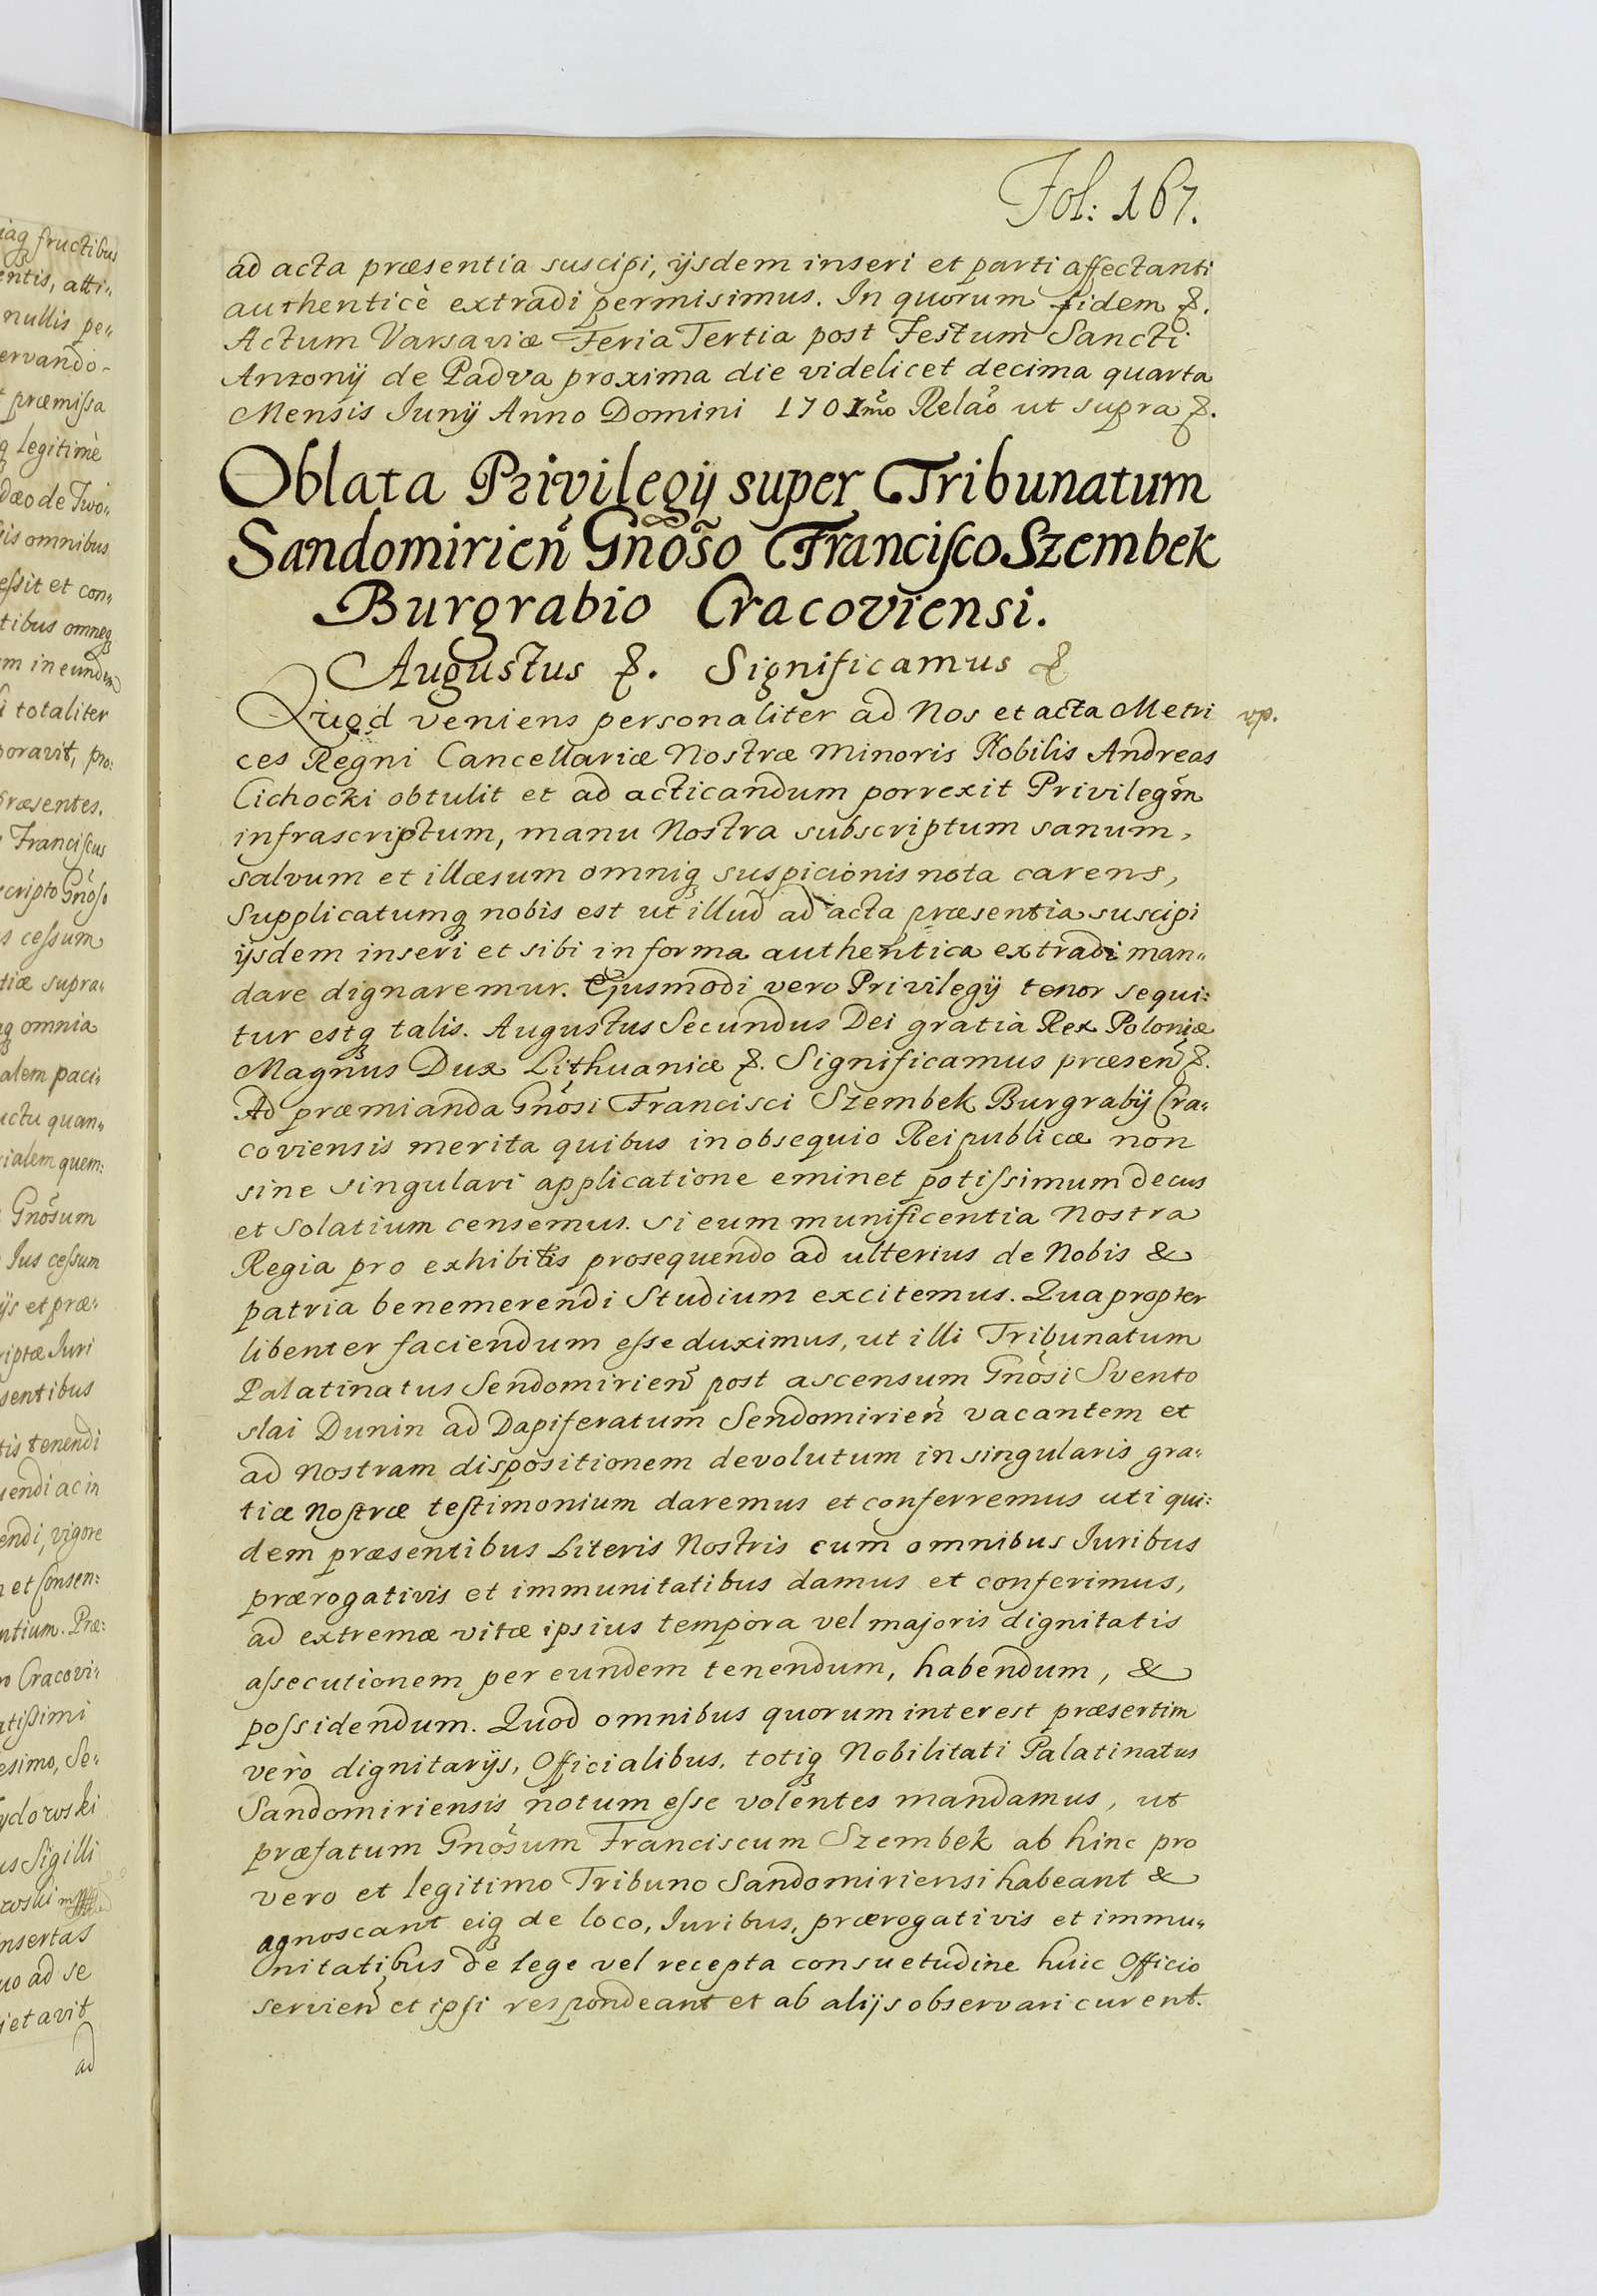 Fol: 167.
ad acta præsentia suscipi, ijsdem inseri et parti affectanti
authenticè extradi permisimus. In quorum fidem &.
Actum Varsaviæ Feria Tertia post Festum Sancti
Antonij de Padva proxima die videlicet decima quarta
Mensis Junij Anno Domini 1701mo Relaõ ut supra &.
Oblata Privilegij super Tribunatum
Sandomirien̄ Gnoso Francisco Szembek
Burgrabio Cracoviensi.
Augustus &. Significamus &
Quod veniens personaliter ad Nos et acta Metri
vp.
ces Regni Cancellariæ Nostræ Minoris Nobilis Andreas
Cichocki obtulit et ad acticandum porrexit Privilegm̃
infrascriptum, manu Nostra subscriptum sanum,
salvum et illæsum omniq suspicionis nota carens,
Supplicatumq nobis est ut illud ad acta præsentia suscipi
ijsdem inseri et sibi in forma authentica extradi man„
dare dignaremur. Ejusmodi vero Privilegij tenor sequi:
tur estq talis. Augustus Secundus Dei gratia Rex Poloniæ
Magnus Dux Lithuaniæ &. Significamus præsen̄ &.
Ad præmianda Gnõsi Francisci Szembek Burgrabij Cra„
coviensis merita quibus in obsequio Reipublicæ non
sine singulari applicatione eminet potissimum decus
et solatium censemus. si eum munificentia Nostra
Regia pro exhibitis prosequendo ad ulterius de Nobis &
patria benemerendi studium excitemus. Quapropter
libenter faciendum esse duximus, ut illi Tribunatum
Palatinatus Sendomirien̄ post ascensum Gnõsi Svento
slai Dunin ad Dapiferatum Sendomirien̄ vacantem et
ad nostram dispositionem devolutum in singularis gra„
tiæ nostræ testimonium daremus et conferremus uti qui:
dem præsentibus Literis Nostris cum omnibus Juribus
prærogativis et immunitatibus damus et conferimus,
ad extremæ vitæ ipsius tempora vel majoris dignitatis
assecutionem per eundem tenendum, habendum, &
possidendum. Quod omnibus quorum interest præsertim
verò dignitarijs, Officialibus, totiq Nobilitati Palatinatus
Sandomiriensis notum esse volentes mandamus, ut
præfatum Gnõsum Franciscum Szembek ab hinc pro
vero et legitimo Tribuno Sandomiriensi habeant &
agnoscant eiq de loco, Juribus, prærogativis et immu„
nitatibus de lege vel recepta consuetudine huic Officio
servien̄ et ipsi respondeant et ab alijs observari curent.